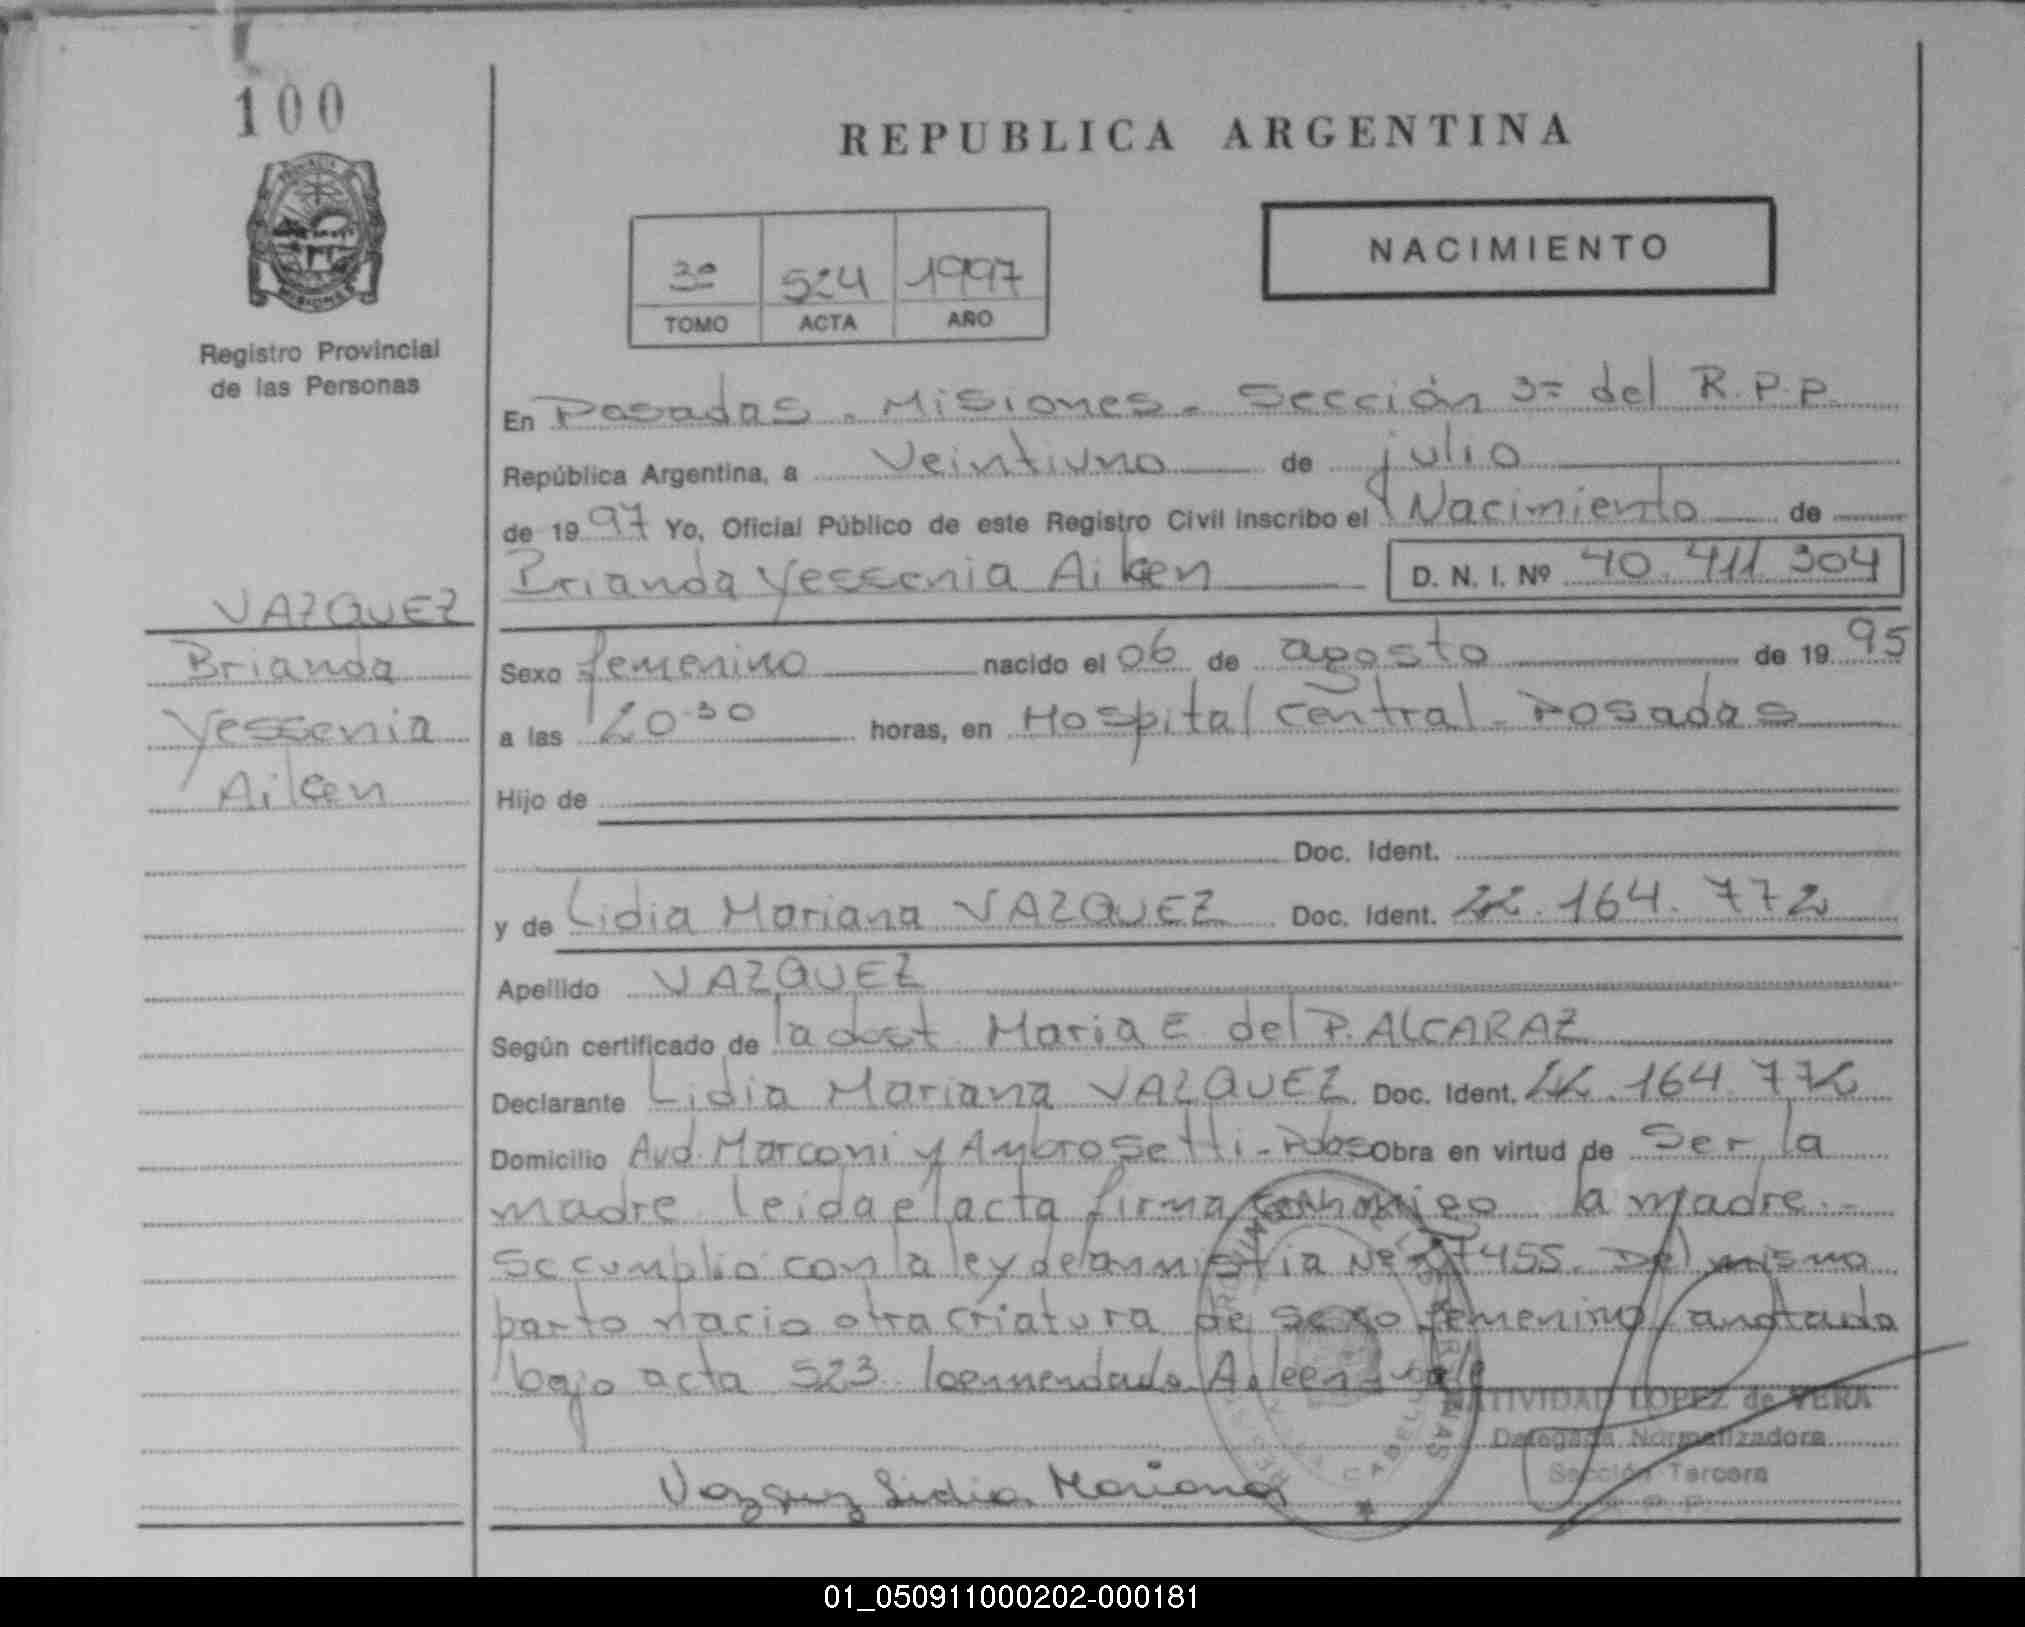 100
REPUBLICA ARGENTINA
NACIMIENTO
3º 524 1997
TOMO ACTA AÑO
Registro Provincial
de las Personas
En Posadas - Misiones - Sección 3= del R.P.P.
República Argentina, a Veintiuno de julio
de 1997 Yo, Oficial Público de este Registro Civil inscribo el Nacimiento de
Brianda Yessenia Aileen D. N. I. Nº 40.411.304
VAZQUEZ
Brianda
Yessenia
Aileen
Sexo femenino nacido el 06 de agosto de 1995
a las 20.30 horas, en Hospital Central - Posadas
Hijo de
Doc. Ident.
y de Lidia Mariana VAZQUEZ Doc. Ident. 22.164.772
Apellido VAZQUEZ
Según certificado de la doct Maria E del P. ALCARAZ
Declarante Lidia Mariana VAZQUEZ Doc. Ident. 22.164.772
Domicilio Avd. Marconi y Ambrosetti - Pdas Obra en virtud de Ser la
madre leida el acta firma conmigo la madre.-
Se cumplio con la ley de amnistia Nº 455. Del mismo
parto nacio otra criatura de sexo femenino anotado
bajo acta 523. lo enmendado Aileen vale
NATIVIDAD LOPEZ de VERA
Delegada Normalizadora
Sección Tercera
Vazquez Lidia Mariana
01_050911000202-000181